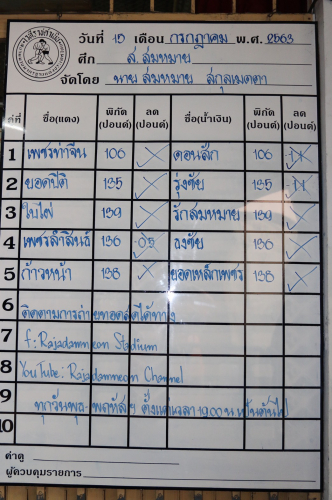 วันที่ 10 เดือน กรกฎาคม พ.ศ. 2563
ศึก ส.สมหมาย
จัดโดย นายสมหมาย สกุลเมตตา
คู่ที่ ชื่อ(แดง) พิกัด (ปอนด์) ลด (ปอนด์) ชื่อ(น้ำเงิน) พิกัด (ปอนด์) ลด (ปอนด์)
1 เพชรท่าจีน 106 ดอนสัก 106
2 ยอดปิติ 135 รุ่งชัย 135
3 ใบไผ่ 139 รักสมหมาย 139
4 เพชรสำสินธ์ 136 0.5 ธงชัย 136
5 ก้าวหน้า 138 ยอดเหล็กเพชร 138
6 ติดตามการถ่ายทอดสดได้ทาง
7 f: Rajadamnern Stadium
8 YouTube: Rajadamnern Channel
9 ทุกวันพุธ-พฤหัสฯ ตั้งแต่เวลา 19.00 น. เป็นต้นไป
10
ค่าดู
ผู้ควบคุมรายการ